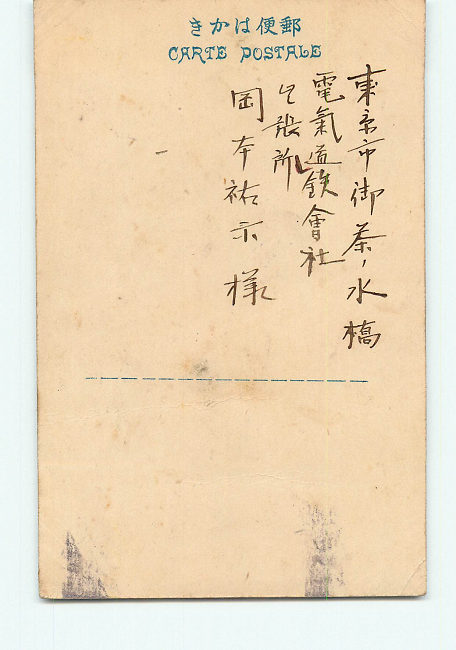 きかは便郵
CARTE POSTALE
東京市御茶ノ水橋
電氣道鉄會社
出張所
岡本祐示様